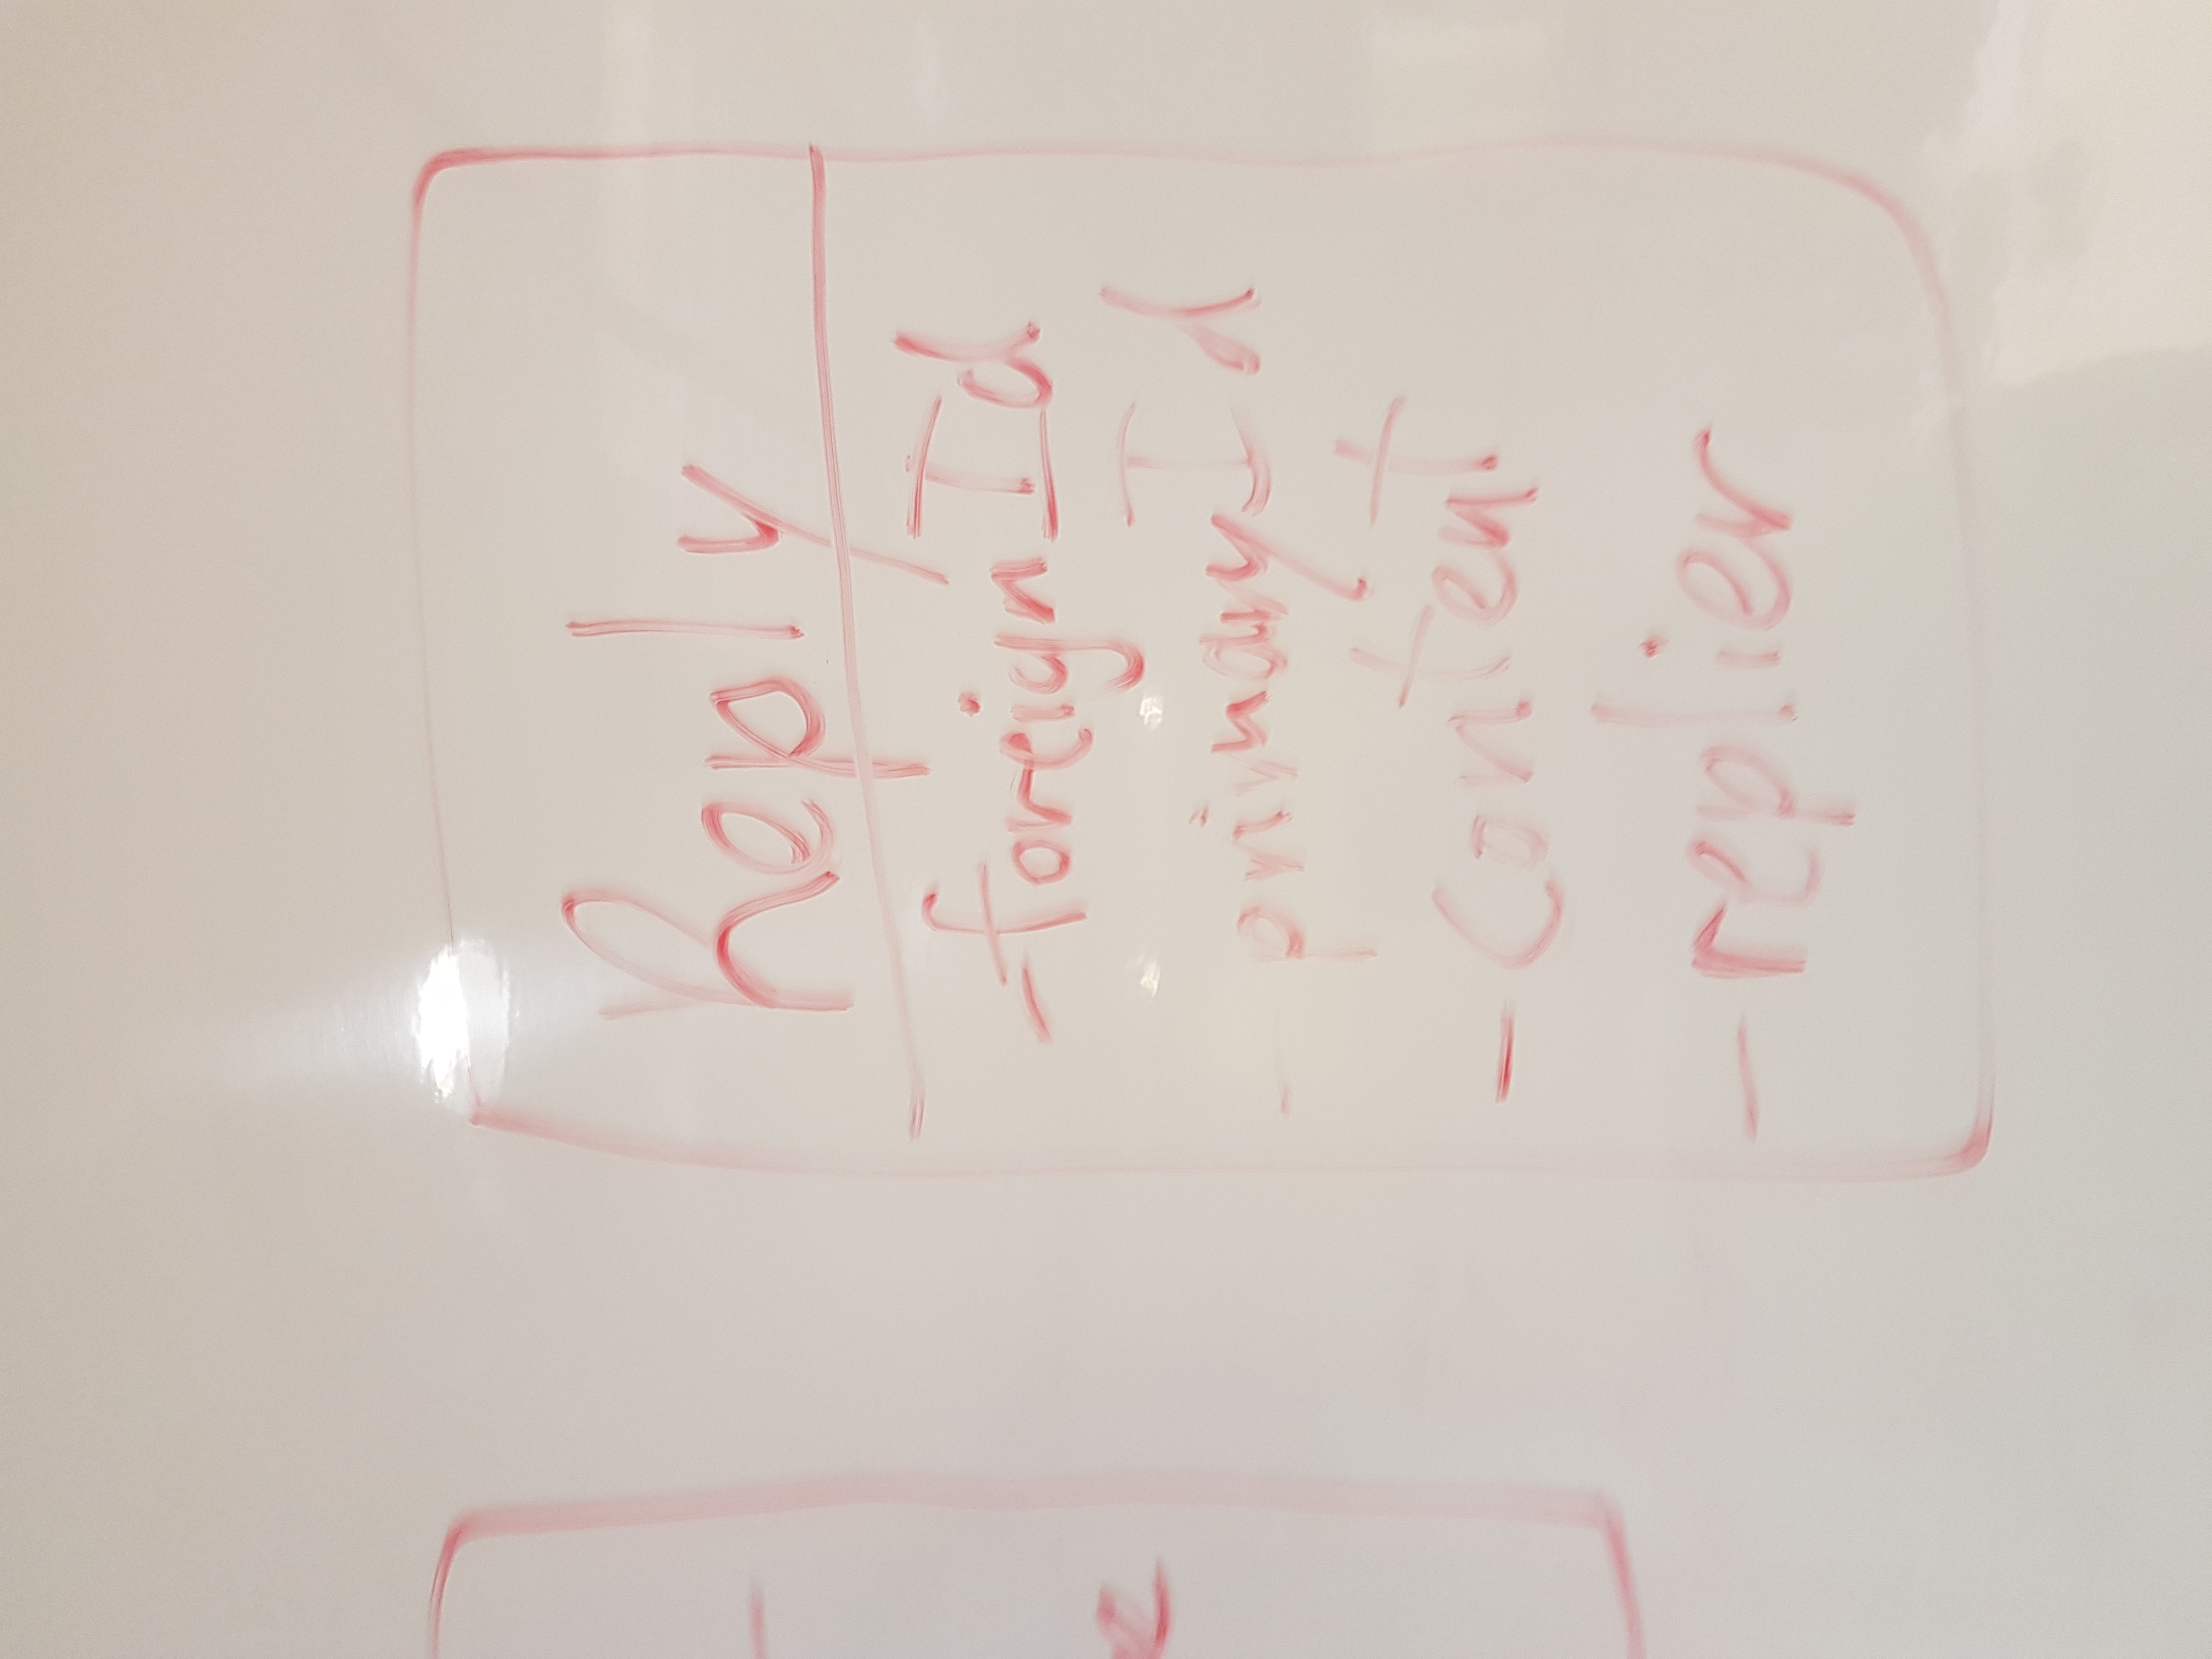 Reply
- foreignId
- primaryId
- content
- replier